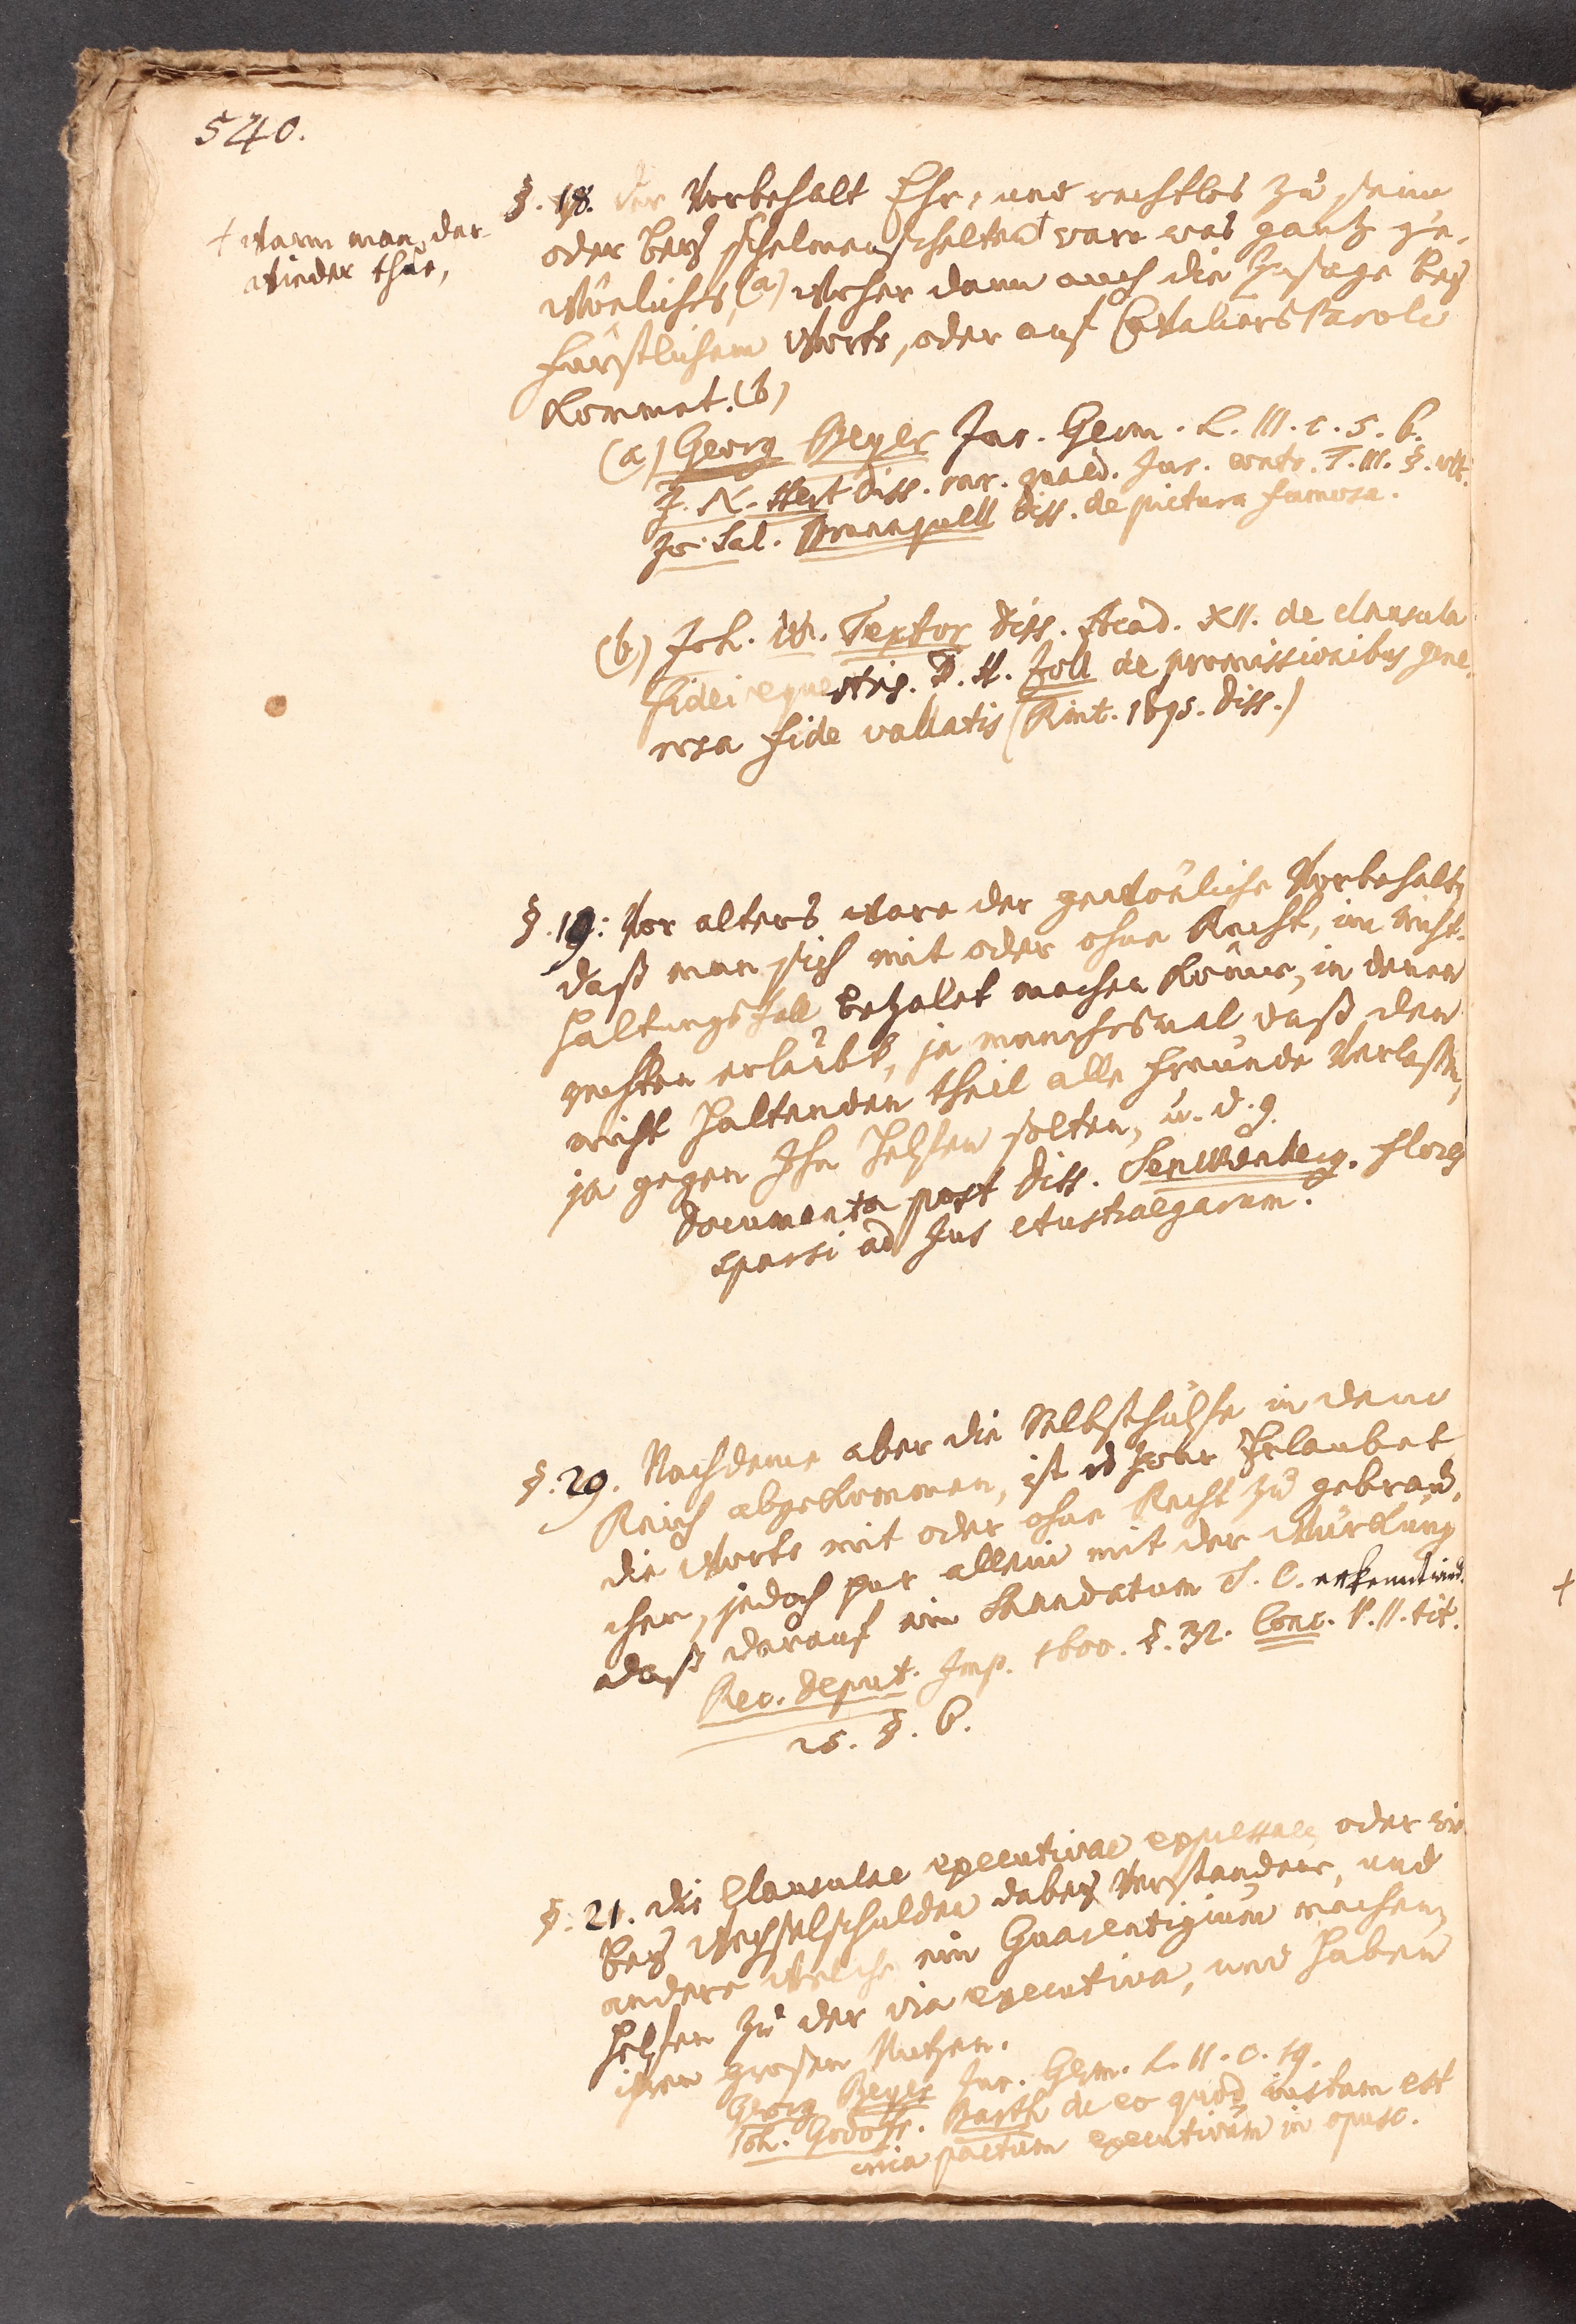 540.
+ wann man dar-
wieder thue,
§. 18. der Vorbehalt Ehr- und rechtlos zu seine
oder beÿ schelmenschelten + ware was gantz ge-
wönliches, (a) woher dann auch die Zusage beÿ
fürstlichem Worte, oder auf Cavaliers Parole
kommet. (b)
(a) Georg Beyer Jur. Germ. L. III. c. 5. 6.
J. N. Hert diss. rar. quaed. Jur. contr. T. III. §. ult.
Jo. Sal. Brunquell diss. de pictura famosa.
(b) Joh. W. Textor diss. Acad. XII. de clausula
fidei equestris. D. H. Zoll de promissionibus gene-
rosa fide vallatis (Rint. 1695. diss.)
§. 19. Vor alters ware der gewönliche Vorbehalt,
daß man sich mit oder ohne Recht, im nicht-
haltungsfall bezalet machen könne, in denen
rechten erlaubt, ja manchesmal daß den
nicht haltenden theil alle freunde verlaßen,
ja gegen Ihn helfen solten, u. d. g.
documenta post diss. Senckenberg. flores
sparsi ad Jus Austraegarum.
§. 20. Nachdeme aber die Selbsthülfe in dem
Reich abgekommen, ist es zwar Erlaubet
die Worte mit oder ohne Recht zu gebrau-
chen, jedoch nur allein mit der würkung
daß darauf ein Mandatum S. C. erkennt wird.
Rec. deput. Imp. 1600. §. 32. Conc. P. II. tit.
25. §. 6.
§. 21. die Clausulae executivae expressae, oder wie
beÿ Wechselschulden dabeÿ verstandene, und
andere welche ein Guarentigium machen,
helfen zu der via executiva, und haben
ihren großen Nutzen.
Georg Beyer Jur. Germ. L. II. c. 19.
Joh. Godofr. Barth de eo quod iustum est
circa pactum executivum in opusc.